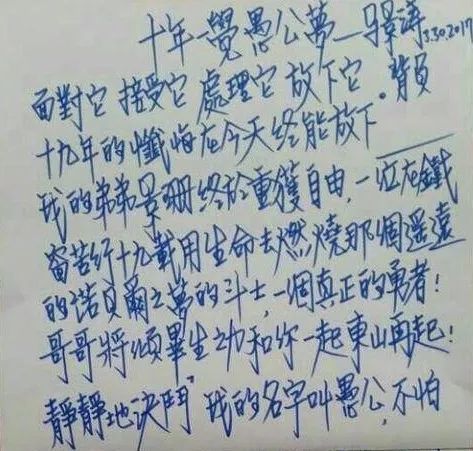 十年一覺愚公夢—景濤 3.30.2017
面對它 接受它 處理它 放下它。背負
十九年的懺悔在今天终能放下
我的弟弟景珊終於重獲自由，一位在鐵
窗苦行十九載用生命去燃燒那個遥遠
的諾貝爾之夢的斗士，一個真正的勇者！
哥哥將傾畢生之功和你一起東山再起！
靜靜地決鬥 我的名字叫愚公，不怕